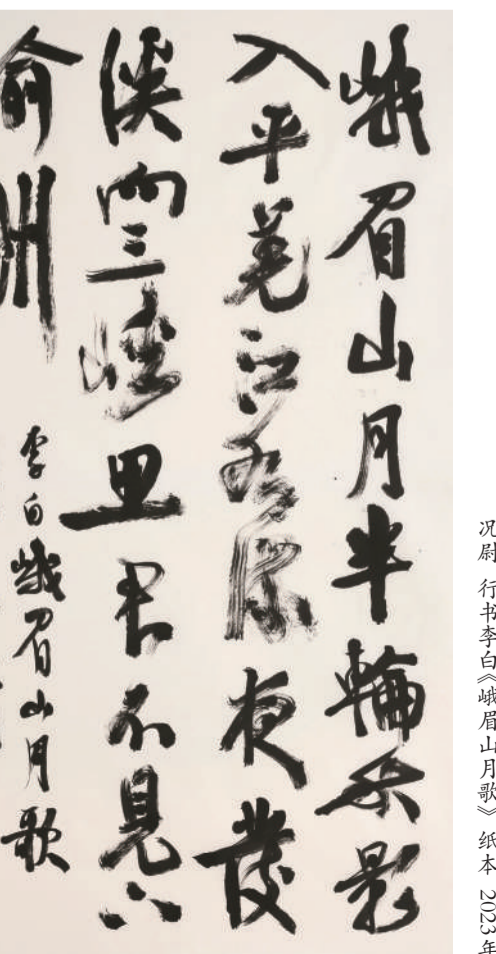 峨眉山月半輪秋影
入平羌江水流夜發
溪向三峽思君不見下
渝州
李白峨眉山月歌
况尉 行书李白《峨眉山月歌》 纸本 2023年